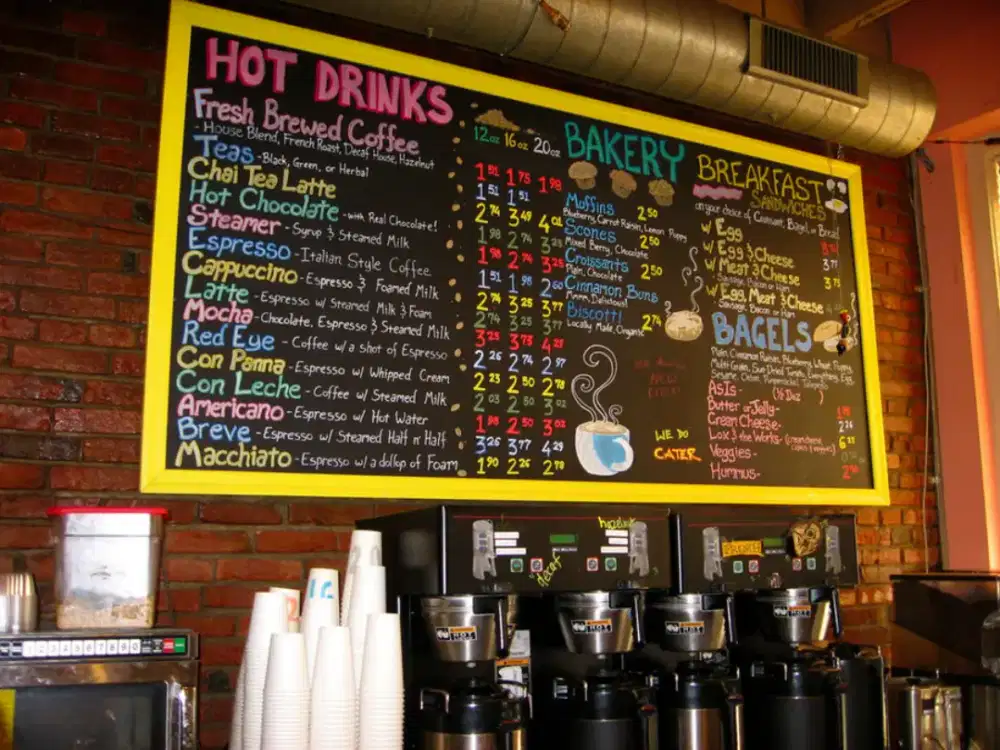 HOT DRINKS
Fresh Brewed Coffee
- House Blend, French Roast, Decaf House, Hazelnut
Teas - Black, Green, or Herbal
Chai Tea Latte
Hot Chocolate - with Real Chocolate!
Steamer - Syrup & Steamed Milk
Espresso - Italian Style Coffee
Cappuccino - Espresso & Foamed Milk
Latte - Espresso w/ Steamed Milk & Foam
Mocha - Chocolate, Espresso & Steamed Milk
Red Eye - Coffee w/a shot of Espresso
Con Panna - Espresso w/ Whipped Cream
Con Leche - Coffee w/ Steamed Milk
Americano - Espresso w/ Hot Water
Breve - Espresso w/ Steamed Half n' Half
Macchiato - Espresso w/a dollop of Foam
12oz 16oz 20oz
1.51 1.75 1.98
1.51 1.51
2.74 3.49 4.01
1.98 2.74 3.25
1.98 2.74 3.25
1.51 1.98 2.60
2.74 3.25 3.77
2.74 3.25 3.77
3.25 3.73 4.25
2.26 2.74 2.97
2.23 2.50 2.70
2.03 2.50 3.02
1.98 2.50 3.02
3.26 3.77 4.29
1.90 2.26 2.70
BAKERY
Muffins 2.50
Blueberry, Carrot Raisin, Lemon Poppy
Scones 2.50
Mixed Berry, Chocolate
Croissants 2.50
Plain, Chocolate
Cinnamon Buns
Mmm, Delicious!
Biscotti 2.74
Locally Made, Organic
WE DO
CATER
BREAKFAST
SANDWICHES
on your choice of Croissant, Bagel, or Bread
w/ Egg
w/ Egg & Cheese
w/ Meat & Cheese 3.75
Sausage, Bacon or Ham
w/ Egg, Meat & Cheese
Sausage, Bacon or Ham
BAGELS
Plain, Cinnamon Raisin, Blueberry, Wheat, Poppy,
Multi-Grain, Sun Dried Tomato, Everything, Egg,
Sesame, Onion, Pumpernickel, Jalapeño
As Is - (½ Doz )
Butter or Jelly -
Cream Cheese - 2.26
Lox & the Works -
Veggies -
Hummus -
hazelnut
decaf
16